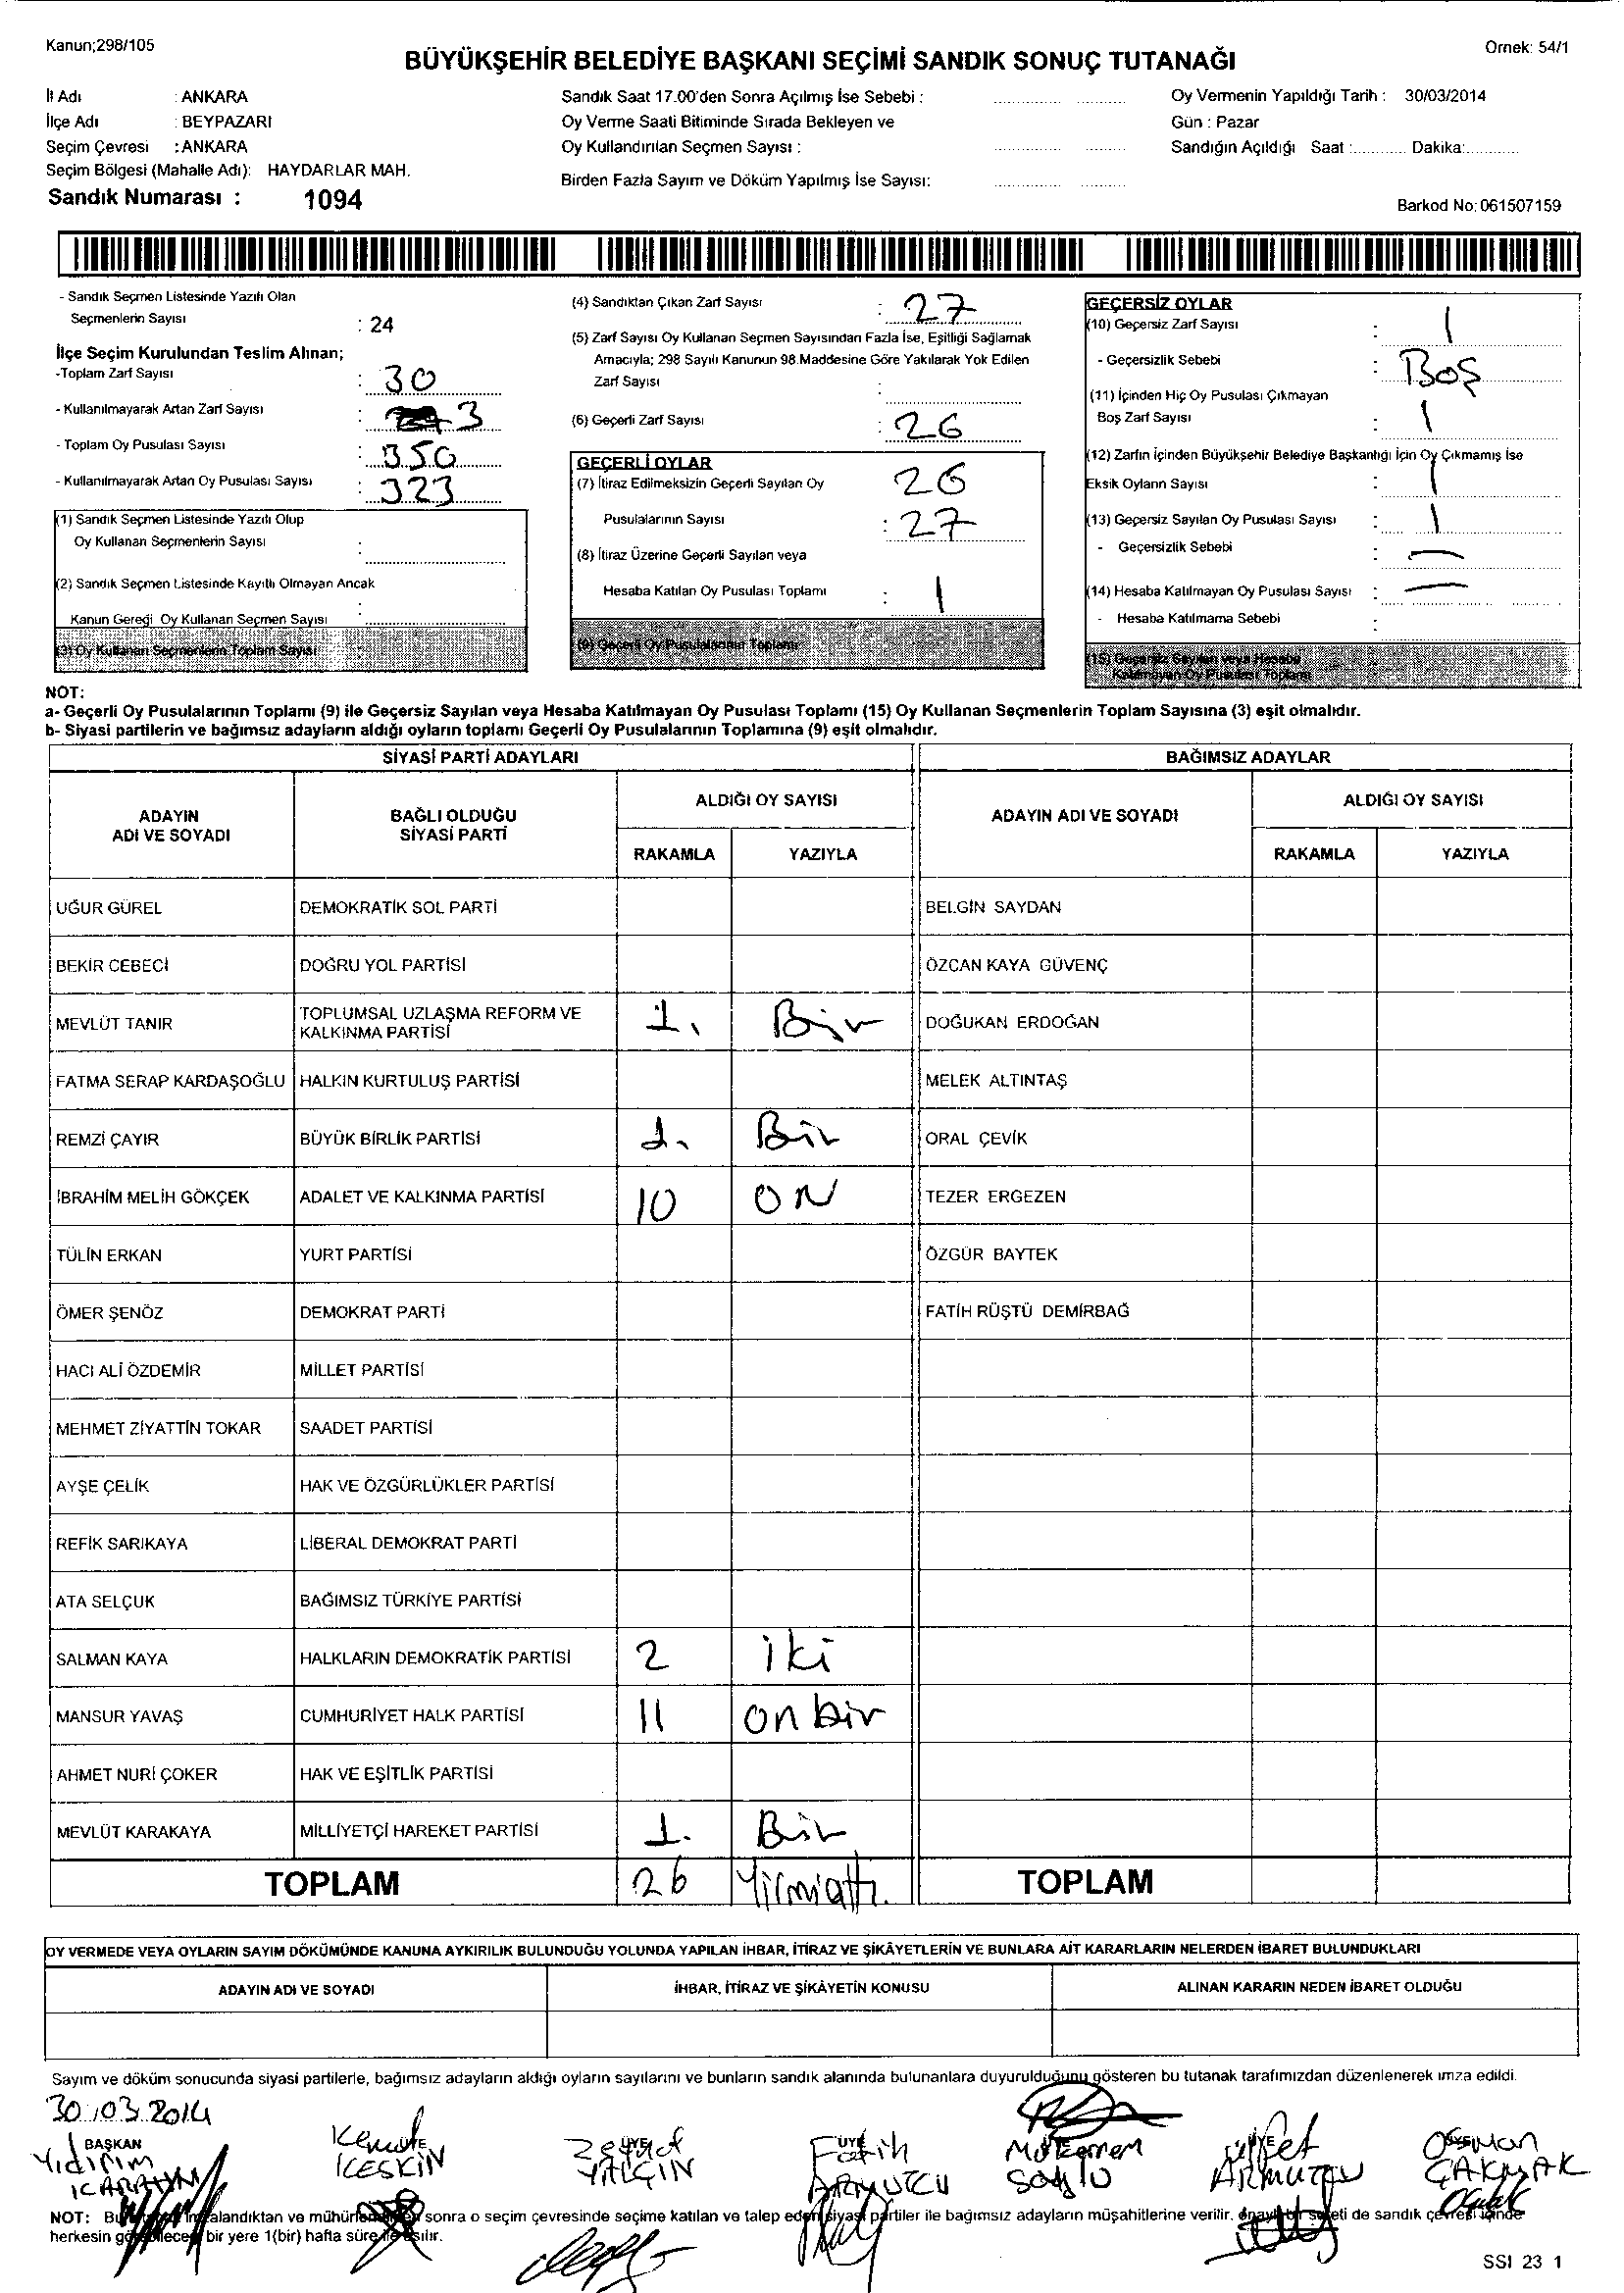 Kanun;298/105
Örnek: 54/1
BÜYÜKŞEHİR BELEDİYE BAŞKANI SEÇİMİ SANDIK SONUÇ TUTANAĞI
İl Adı : ANKARA
İlçe Adı : BEYPAZARI
Seçim Çevresi : ANKARA
Seçim Bölgesi (Mahalle Adı): HAYDARLAR MAH.
Sandık Numarası : 1094
Sandık Saat 17.00'den Sonra Açılmış İse Sebebi :
Oy Verme Saati Bitiminde Sırada Bekleyen ve
Oy Kullandırılan Seçmen Sayısı :
Birden Fazla Sayım ve Döküm Yapılmış İse Sayısı:
Oy Vermenin Yapıldığı Tarih : 30/03/2014
Gün : Pazar
Sandığın Açıldığı Saat :............ Dakika:............
Barkod No: 061507159
- Sandık Seçmen Listesinde Yazılı Olan
Seçmenlerin Sayısı : 24
İlçe Seçim Kurulundan Teslim Alınan;
-Toplam Zarf Sayısı : 30
- Kullanılmayarak Artan Zarf Sayısı : 3
- Toplam Oy Pusulası Sayısı : 350
- Kullanılmayarak Artan Oy Pusulası Sayısı : 323
(1) Sandık Seçmen Listesinde Yazılı Olup
Oy Kullanan Seçmenlerin Sayısı :
(2) Sandık Seçmen Listesinde Kayıtlı Olmayan Ancak
Kanun Gereği Oy Kullanan Seçmen Sayısı :
(3) Oy Kullanan Seçmenlerin Toplam Sayısı
(4) Sandıktan Çıkan Zarf Sayısı : 27
(5) Zarf Sayısı Oy Kullanan Seçmen Sayısından Fazla İse, Eşitliği Sağlamak
Amacıyla; 298 Sayılı Kanunun 98.Maddesine Göre Yakılarak Yok Edilen
Zarf Sayısı :
(6) Geçerli Zarf Sayısı : 26
GEÇERLİ OYLAR
(7) İtiraz Edilmeksizin Geçerli Sayılan Oy 26
Pusulalarının Sayısı : 27
(8) İtiraz Üzerine Geçerli Sayılan veya
Hesaba Katılan Oy Pusulası Toplamı : 1
(9) Geçerli Oy Pusulalarının Toplamı
GEÇERSİZ OYLAR
(10) Geçersiz Zarf Sayısı : 1
- Geçersizlik Sebebi : Boş
(11) İçinden Hiç Oy Pusulası Çıkmayan
Boş Zarf Sayısı : 1
(12) Zarfın İçinden Büyükşehir Belediye Başkanlığı İçin Oy Çıkmamış İse
Eksik Oyların Sayısı : 1
(13) Geçersiz Sayılan Oy Pusulası Sayısı : 1
- Geçersizlik Sebebi : —
(14) Hesaba Katılmayan Oy Pusulası Sayısı : —
- Hesaba Katılmama Sebebi :
(15) Geçersiz Sayılan veya Hesaba
Katılmayan Oy Pusulası Toplamı
NOT:
a- Geçerli Oy Pusulalarının Toplamı (9) ile Geçersiz Sayılan veya Hesaba Katılmayan Oy Pusulası Toplamı (15) Oy Kullanan Seçmenlerin Toplam Sayısına (3) eşit olmalıdır.
b- Siyasi partilerin ve bağımsız adayların aldığı oyların toplamı Geçerli Oy Pusulalarının Toplamına (9) eşit olmalıdır.
SİYASİ PARTİ ADAYLARI BAĞIMSIZ ADAYLAR
ADAYIN ADI VE SOYADI BAĞLI OLDUĞU SİYASİ PARTİ ALDIĞI OY SAYISI ADAYIN ADI VE SOYADI ALDIĞI OY SAYISI
RAKAMLA YAZIYLA RAKAMLA YAZIYLA
UĞUR GÜREL DEMOKRATİK SOL PARTİ BELGİN SAYDAN
BEKİR CEBECİ DOĞRU YOL PARTİSİ ÖZCAN KAYA GÜVENÇ
MEVLÜT TANIR TOPLUMSAL UZLAŞMA REFORM VE KALKINMA PARTİSİ 1. Bir DOĞUKAN ERDOĞAN
FATMA SERAP KARDAŞOĞLU HALKIN KURTULUŞ PARTİSİ MELEK ALTINTAŞ
REMZİ ÇAYIR BÜYÜK BİRLİK PARTİSİ 1. Bir ORAL ÇEVİK
İBRAHİM MELİH GÖKÇEK ADALET VE KALKINMA PARTİSİ 10 ON TEZER ERGEZEN
TÜLİN ERKAN YURT PARTİSİ ÖZGÜR BAYTEK
ÖMER ŞENÖZ DEMOKRAT PARTİ FATİH RÜŞTÜ DEMİRBAĞ
HACI ALİ ÖZDEMİR MİLLET PARTİSİ
MEHMET ZİYATTİN TOKAR SAADET PARTİSİ
AYŞE ÇELİK HAK VE ÖZGÜRLÜKLER PARTİSİ
REFİK SARIKAYA LİBERAL DEMOKRAT PARTİ
ATA SELÇUK BAĞIMSIZ TÜRKİYE PARTİSİ
SALMAN KAYA HALKLARIN DEMOKRATİK PARTİSİ 2 iki
MANSUR YAVAŞ CUMHURİYET HALK PARTİSİ 11 on bir
AHMET NURİ ÇOKER HAK VE EŞİTLİK PARTİSİ
MEVLÜT KARAKAYA MİLLİYETÇİ HAREKET PARTİSİ 1. Bir
TOPLAM 26 Yirmialtı. TOPLAM
OY VERMEDE VEYA OYLARIN SAYIM DÖKÜMÜNDE KANUNA AYKIRILIK BULUNDUĞU YOLUNDA YAPILAN İHBAR, İTİRAZ VE ŞİKÂYETLERİN VE BUNLARA AİT KARARLARIN NELERDEN İBARET BULUNDUKLARI
ADAYIN ADI VE SOYADI İHBAR, İTİRAZ VE ŞİKÂYETİN KONUSU ALINAN KARARIN NEDEN İBARET OLDUĞU
Sayım ve döküm sonucunda siyasi partilerle, bağımsız adayların aldığı oyların sayılarını ve bunların sandık alanında bulunanlara duyurulduğunu gösteren bu tutanak tarafımızdan düzenlenerek imza edildi.
30.03.2014
BAŞKAN ÜYE ÜYE ÜYE ÜYE ÜYE
Yıldırım Zeynel Fatih Mükerrem Osman
KESKİN YALÇIN ARMUTCU ARMUTCU ÇAKMAK
NOT: alandıktan ve mühürlendikten sonra o seçim çevresinde seçime katılan ve talep eden siyasi partiler ile bağımsız adayların müşahitlerine verilir. de sandık çevresi içinde
herkesin görebileceği bir yere 1(bir) hafta süre ile asılır.
SSI 23 1